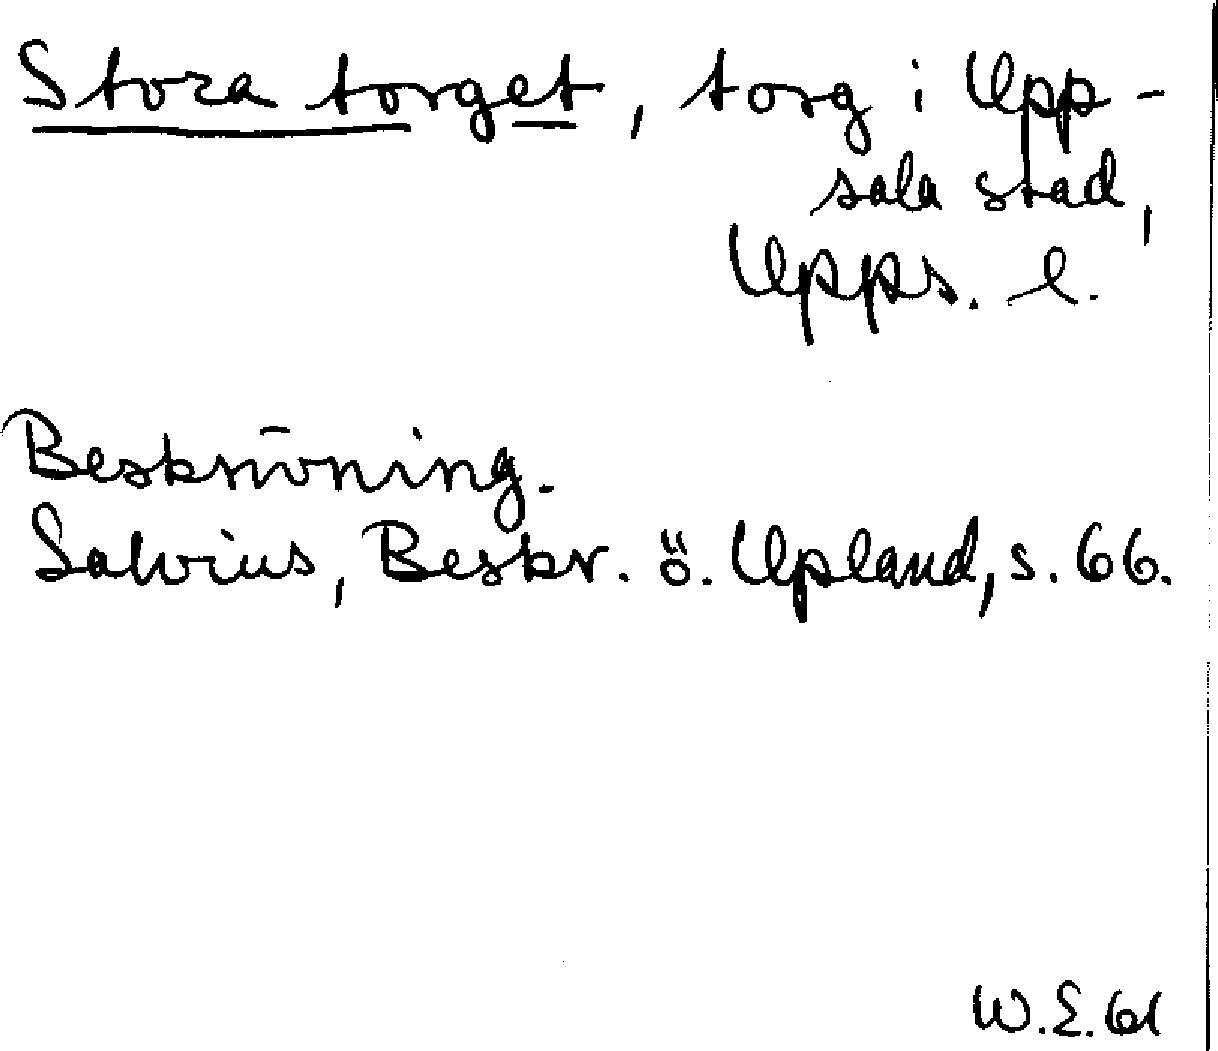 Stora torget, torg i Upp-
sala stad,
Upps. l.
Beskrivning.
Salvius, Beskr. ö. Upland, s. 66.
W.E. 61